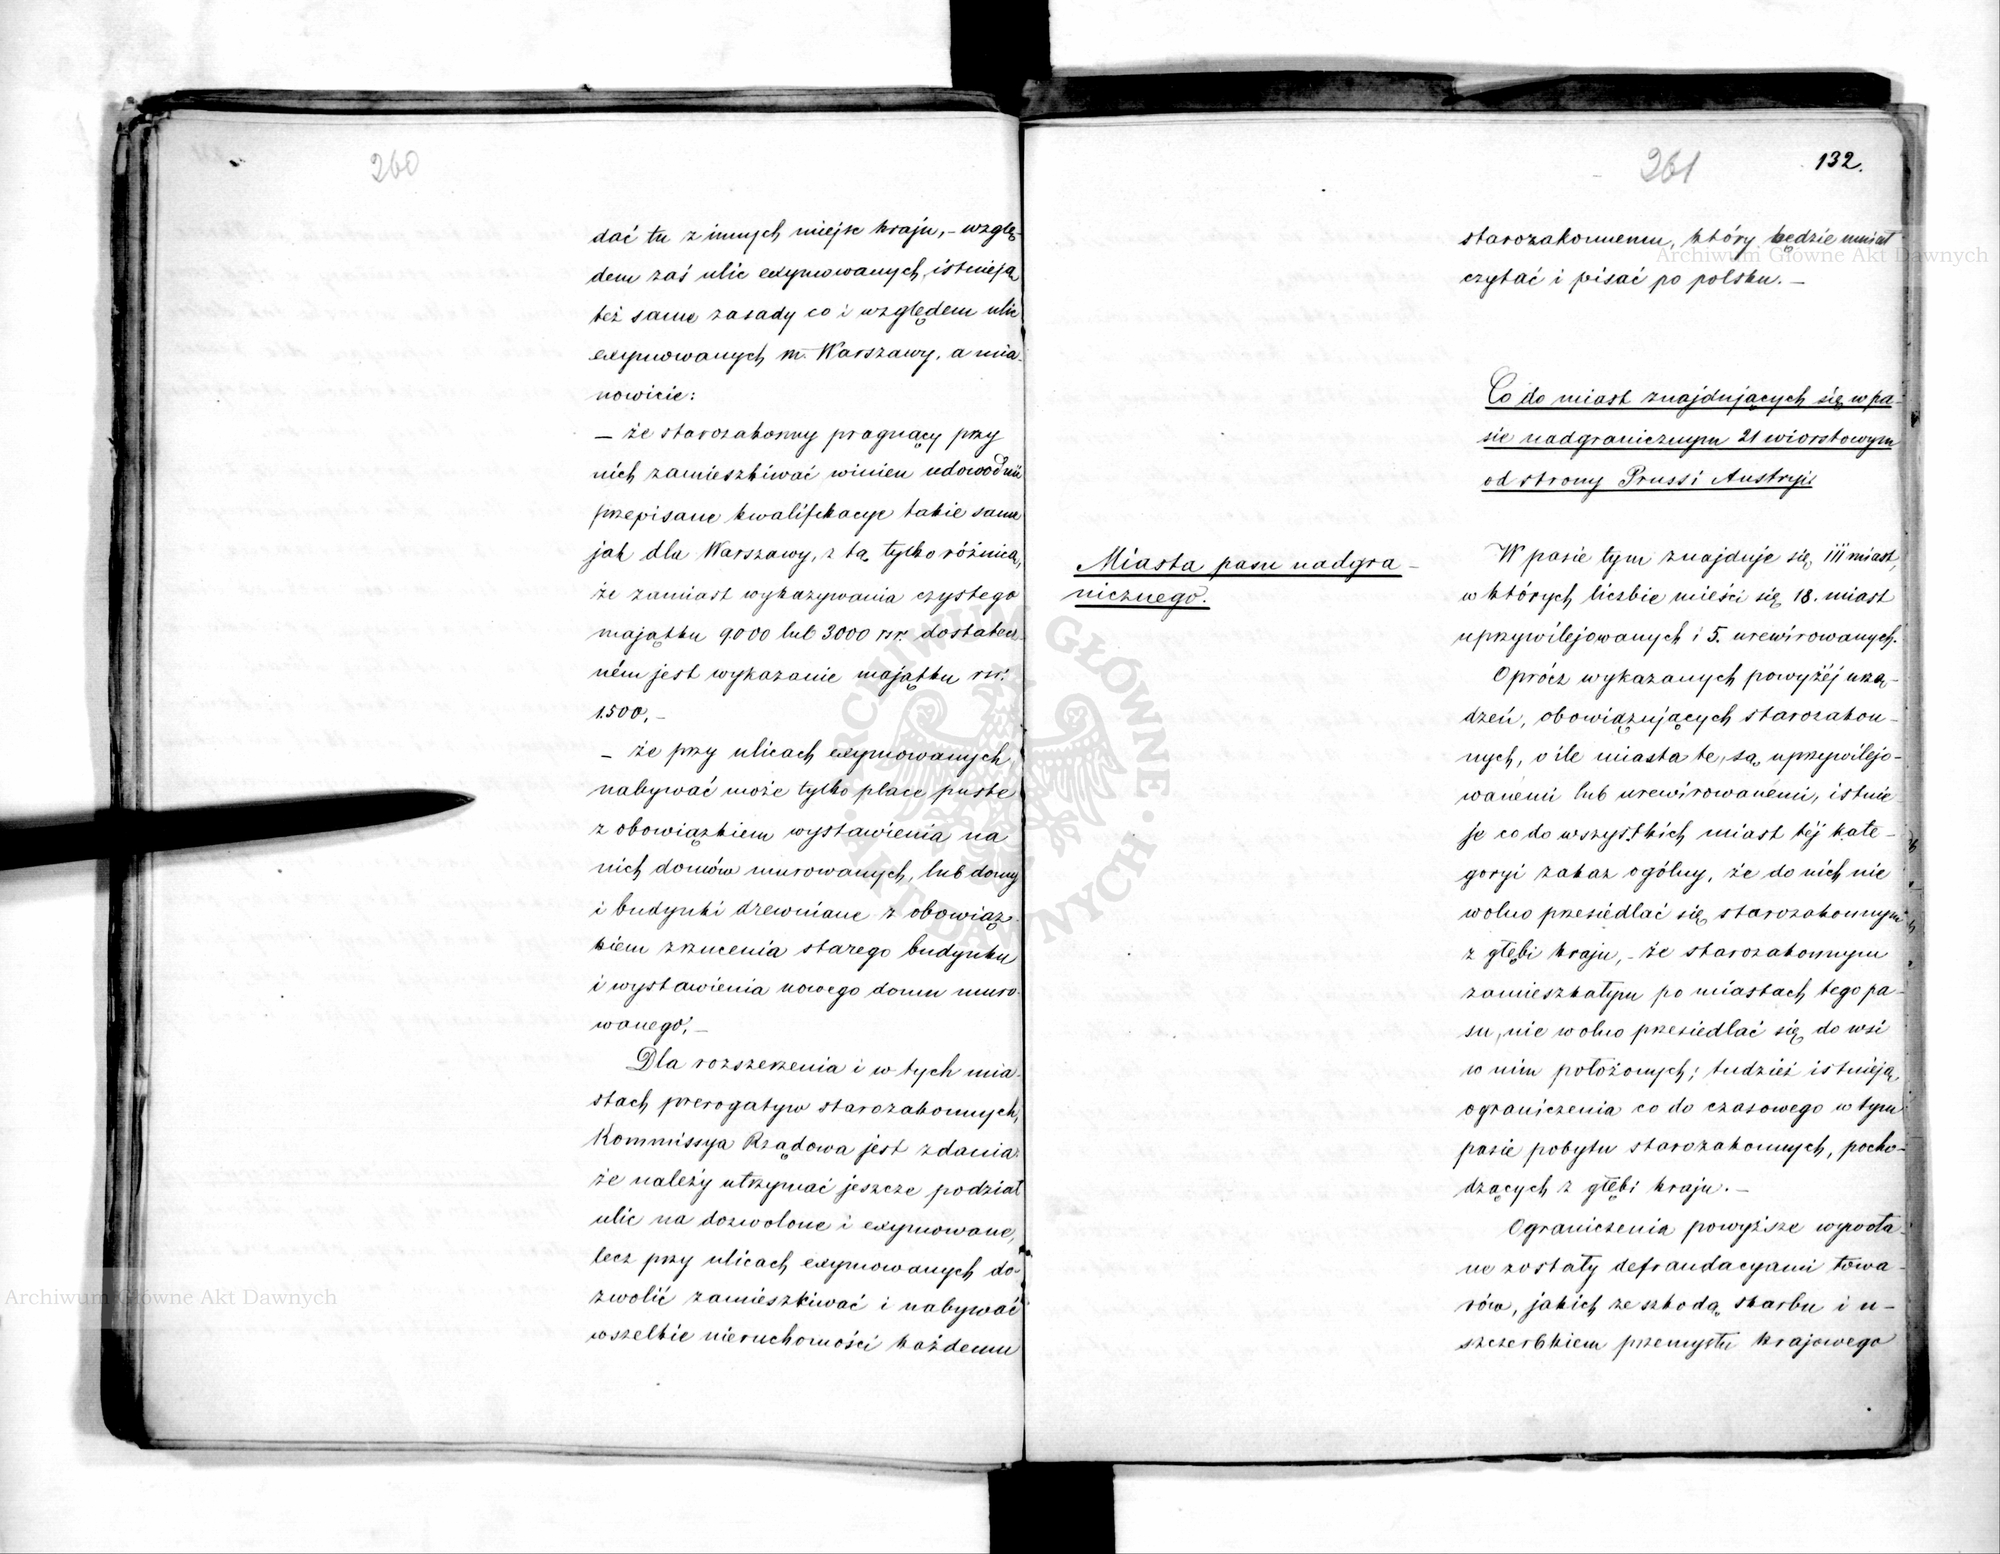 260
dać tu z innych miejsc kraju, – wzglę-
dem zaś ulic exymowanych, istnieją
też same zasady co i względem ulic
exymowanych m. Warszawy, a mia-
nowicie:
– że starozakonny pragnący przy
nich zamieszkiwać winien udowodnić
przepisane kwalifikacye takie same
jak dla Warszawy, z tą tylko różnicą,
że zamiast wykazywania czystego
majątku 9000 lub 3000 rsr. dostatecz-
ném jest wykazanie majątku rsr.
1500, –
– że przy ulicach exymowanych
nabywać może tylko place puste
z obowiązkiem wystawienia na
nich domów murowanych, lub domy
i budynki drewniane z obowiąz-
kiem zrzucenia starego budynku
i wystawienia nowego domu muro-
wanego, –
Dla rozszerzenia i w tych mia-
stach prerogatyw starozakonnych,
Kommissya Rządowa jest zdania
że należy utrzymać jeszcze podział
ulic na dozwolone i exymowane,
lecz przy ulicach exymowanych do-
zwolić zamieszkiwać i nabywać
wszelkie nieruchomości każdemu
261
132.
starozakonnemu, który będzie umiał
czytać i pisać po polsku. –
Co do miast znajdujących się w pa-
sie nadgranicznym 21 wiorstowym
od strony Pruss i Austryi
Miasta pasu nadgra-
nicznego.
W pasie tym znajduje się 111 miast,
w których liczbie mieści się 18. miast
uprzywilejowanych i 5. urewirowanych.
Oprócz wykazanych powyżéj urzą-
dzeń, obowiązujących starozakon-
nych, o ile miasta te, są uprzywilejo-
wanemi lub urewirowanemi, istnie-
je co do wszystkich miast téj kate-
goryi zakaz ogólny, że do nich nie
wolno przesiedlać się starozakonnym
z głębi kraju, – że starozakonnym
zamieszkałym po miastach tego pa-
su, nie wolno przesiedlać się do wsi
w nim położonych; tudzież istnieją
ograniczenia co do czasowego w tym
pasie pobytu starozakonnych, pocho-
dzących z głębi kraju. –
Ograniczenia powyższe wywoła-
ne zostały defraudacyami towa-
rów, jakich ze szkodą skarbu i u-
szczerbkiem przemysłu krajowego
Archiwum Główne Akt Dawnych
Archiwum Główne Akt Dawnych
ARCHIWUM GŁÓWNE AKT DAWNYCH